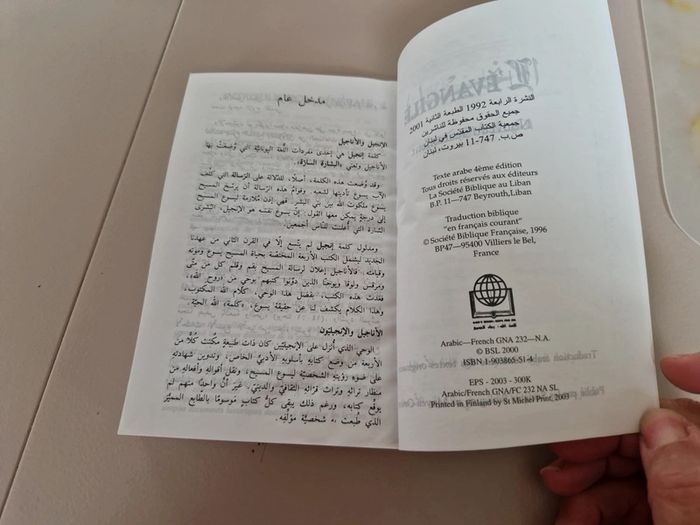 مدخل عام
الإنجيل والأناجيل
كلمة إنجيل هي إحدى مفردات اللغة اليونانيّة التي وُصِفَتْ بها
الأناجيل وتعني «البشارة السارّة».
وقد وُضعت هذه الكلمة، أصلًا، للدّلالة على الرسالة التي كلّف
الآب يسوعَ تأديتَها لشعبه. وقوام هذه الرسالة أن يرسّخ المسيح
يسوع ملكوت الله بين بني البشر. فهي إذن مُلازمة ليسوع المسيح
إلى درجةٍ يمكن معها القول: إنّ يسوع نفسه هو الإنجيل، البُشرى
السّارة التي أُعلنت للنّاس أجمعين.
ومدلول كلمة إنجيل لم يتّسع إلّا في القرن الثاني من عهدنا
الجديد ليشتمل الكتب الأربعة المختصّة بحياة المسيح يسوع وموته
وقيامته. فالأناجيل إعلان لرسالة المسيح بفم وقلم كل من متّى
ومرقس ولوقا ويوحنّا الذين دوّنوا كتبهم بوحي من «روح الله».
فغدت هذه الكتب، بفضل هذا الوحي، كلام الله المكتوب،
وهذا الكلام يكشف لنا عن حقيقة يسوع، «كلمة» الله الحيّة.
الأناجيل والإنجيليّون
الوحي الذي أُنزل على الإنجيليّين كان ذات طبيعة مكّنت كُلًّا من
الأربعة من وضع كتابه بأسلوبه الأدبيّ الخاص، وتدوين شهادته
على ضوء رؤيته الشخصيّة ليسوع المسيح، ونقل أقواله وأفعاله من
منظار تراثه وتراث قرّائه الثقافيّ والدينيّ. غير أنّ واحدًا منهم لم
يوقّع كتابه، ورغم ذلك يبقى كلّ كتاب موسومًا بالطابع المميّز
الذي طبعت به شخصيّة مؤلّفه.
النشرة الرابعة 1992 الطبعة الثانية 2001
جميع الحقوق محفوظة للناشرين
جمعية الكتاب المقدّس في لبنان
ص.ب. 747-11 بيروت، لبنان
Texte arabe 4ème édition
Tous droits réservés aux éditeurs
La Société Biblique au Liban
B.P. 11—747 Beyrouth,Liban
Traduction biblique
"en français courant"
© Société Biblique Française, 1996
BP47—95400 Villiers le Bel,
France
Arabic—French GNA 232—N.A.
© BSL 2000
ISBN 1-903865-51-4
EPS - 2003 - 300K
Arabic/French GNA/FC 232 NA SL
Printed in Finland by St Michel Print, 2003